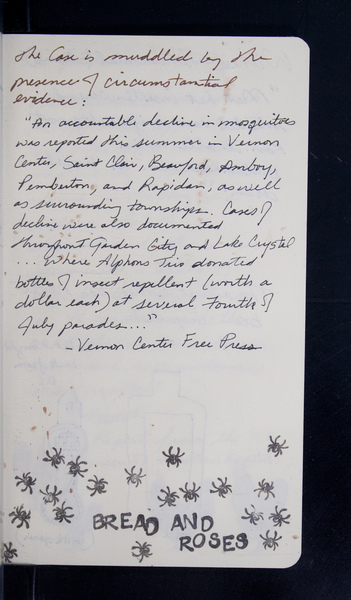 The Case is muddled by the
presence of circumstantial
evidence:
"An accountable decline in mosquitoes
was reported this summer in Vernon
Center, Saint Clair, Beauford, Amboy,
Pemberton, and Rapidan, as well
as surrounding townships. Cases of
decline were also documented
throughout Garden City, and Lake Crystal
... where Alphons Tiro donated
bottles of insect repellent (worth a
dollar each) at several Fourth of
July parades..."
- Vernon Center Free Press
BREAD AND
ROSES